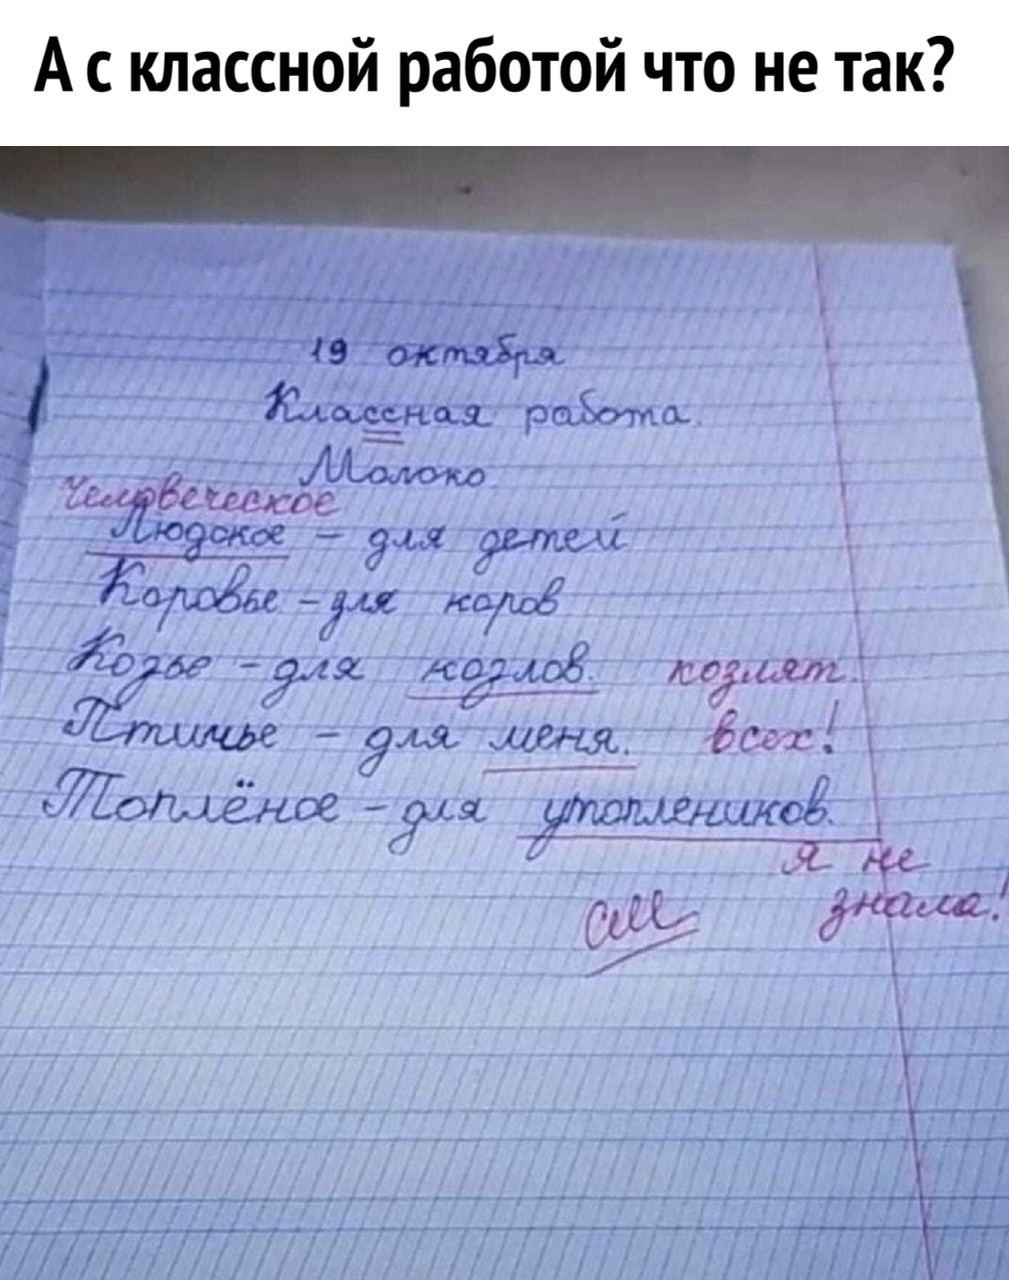 А с классной работой что не так?
19 октября
Классная работа.
Молоко
Человеческое
Людское - для детей
Коровье - для коров
Козье - для козлов. козлят.
Птичье - для меня. всех!
Топлёное - для утоплеников.
я не
см знала!